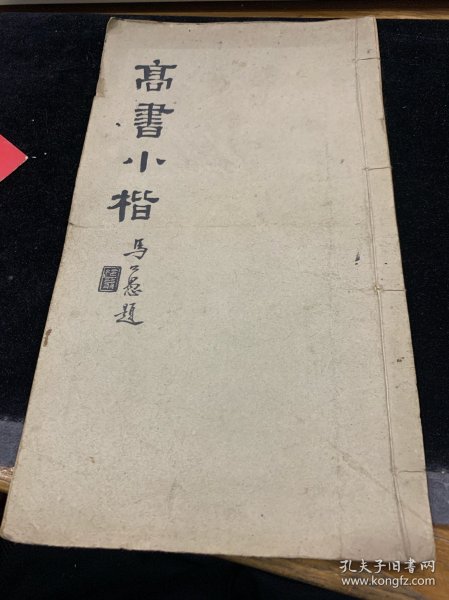 髙書小楷
馬公愚題
孔夫子旧书网
www.kongfz.com